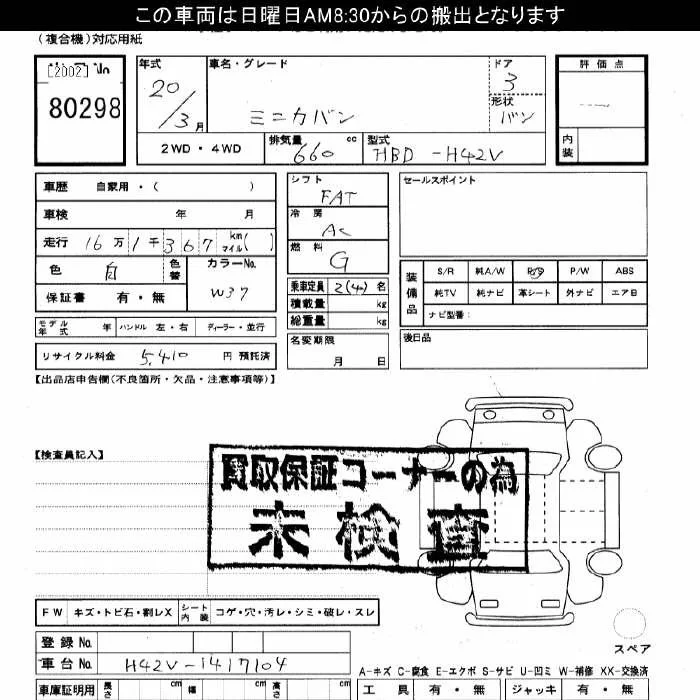 この車両は日曜日AM8:30からの搬出となります
(複合機)対応用紙
[2002]
80298
年式
20/3月
車名・グレード
ミニカバン
ドア
3
形状
バン
評価点
内装
2WD・4WD
排気量
660 cc
型式
HBD-H42V
車歴 自家用・( )
車検 年 月
走行 16万1千367 km マイル( )
色 白
色替
カラーNo.
W37
保証書 有・無
モデル年式 年 ハンドル 左・右 ディーラー・並行
リサイクル料金 5,410 円 預託済
シフト
FAT
冷房
AC
燃料
G
乗車定員 2(4)名
積載量 kg
総重量 kg
名変期限
月 日
セールスポイント
装備品
S/R 純A/W P/S P/W ABS
純TV 純ナビ 革シート 外ナビ エアB
ナビ型番:
後日品
【出品店申告欄(不良箇所・欠品・注意事項等)】
【検査員記入】
買取保証コーナーの為
未検査
FW キズ・トビ石・割レX シート内装 コゲ・穴・汚レ・シミ・破レ・スレ
スペア
登録No.
車台No. H42V-1417104
A-キズ C-腐食 E-エクボ S-サビ U-凹ミ W-補修 XX-交換済
車庫証明用 長さ cm 幅 cm 高さ cm
工具 有・無 ジャッキ 有・無